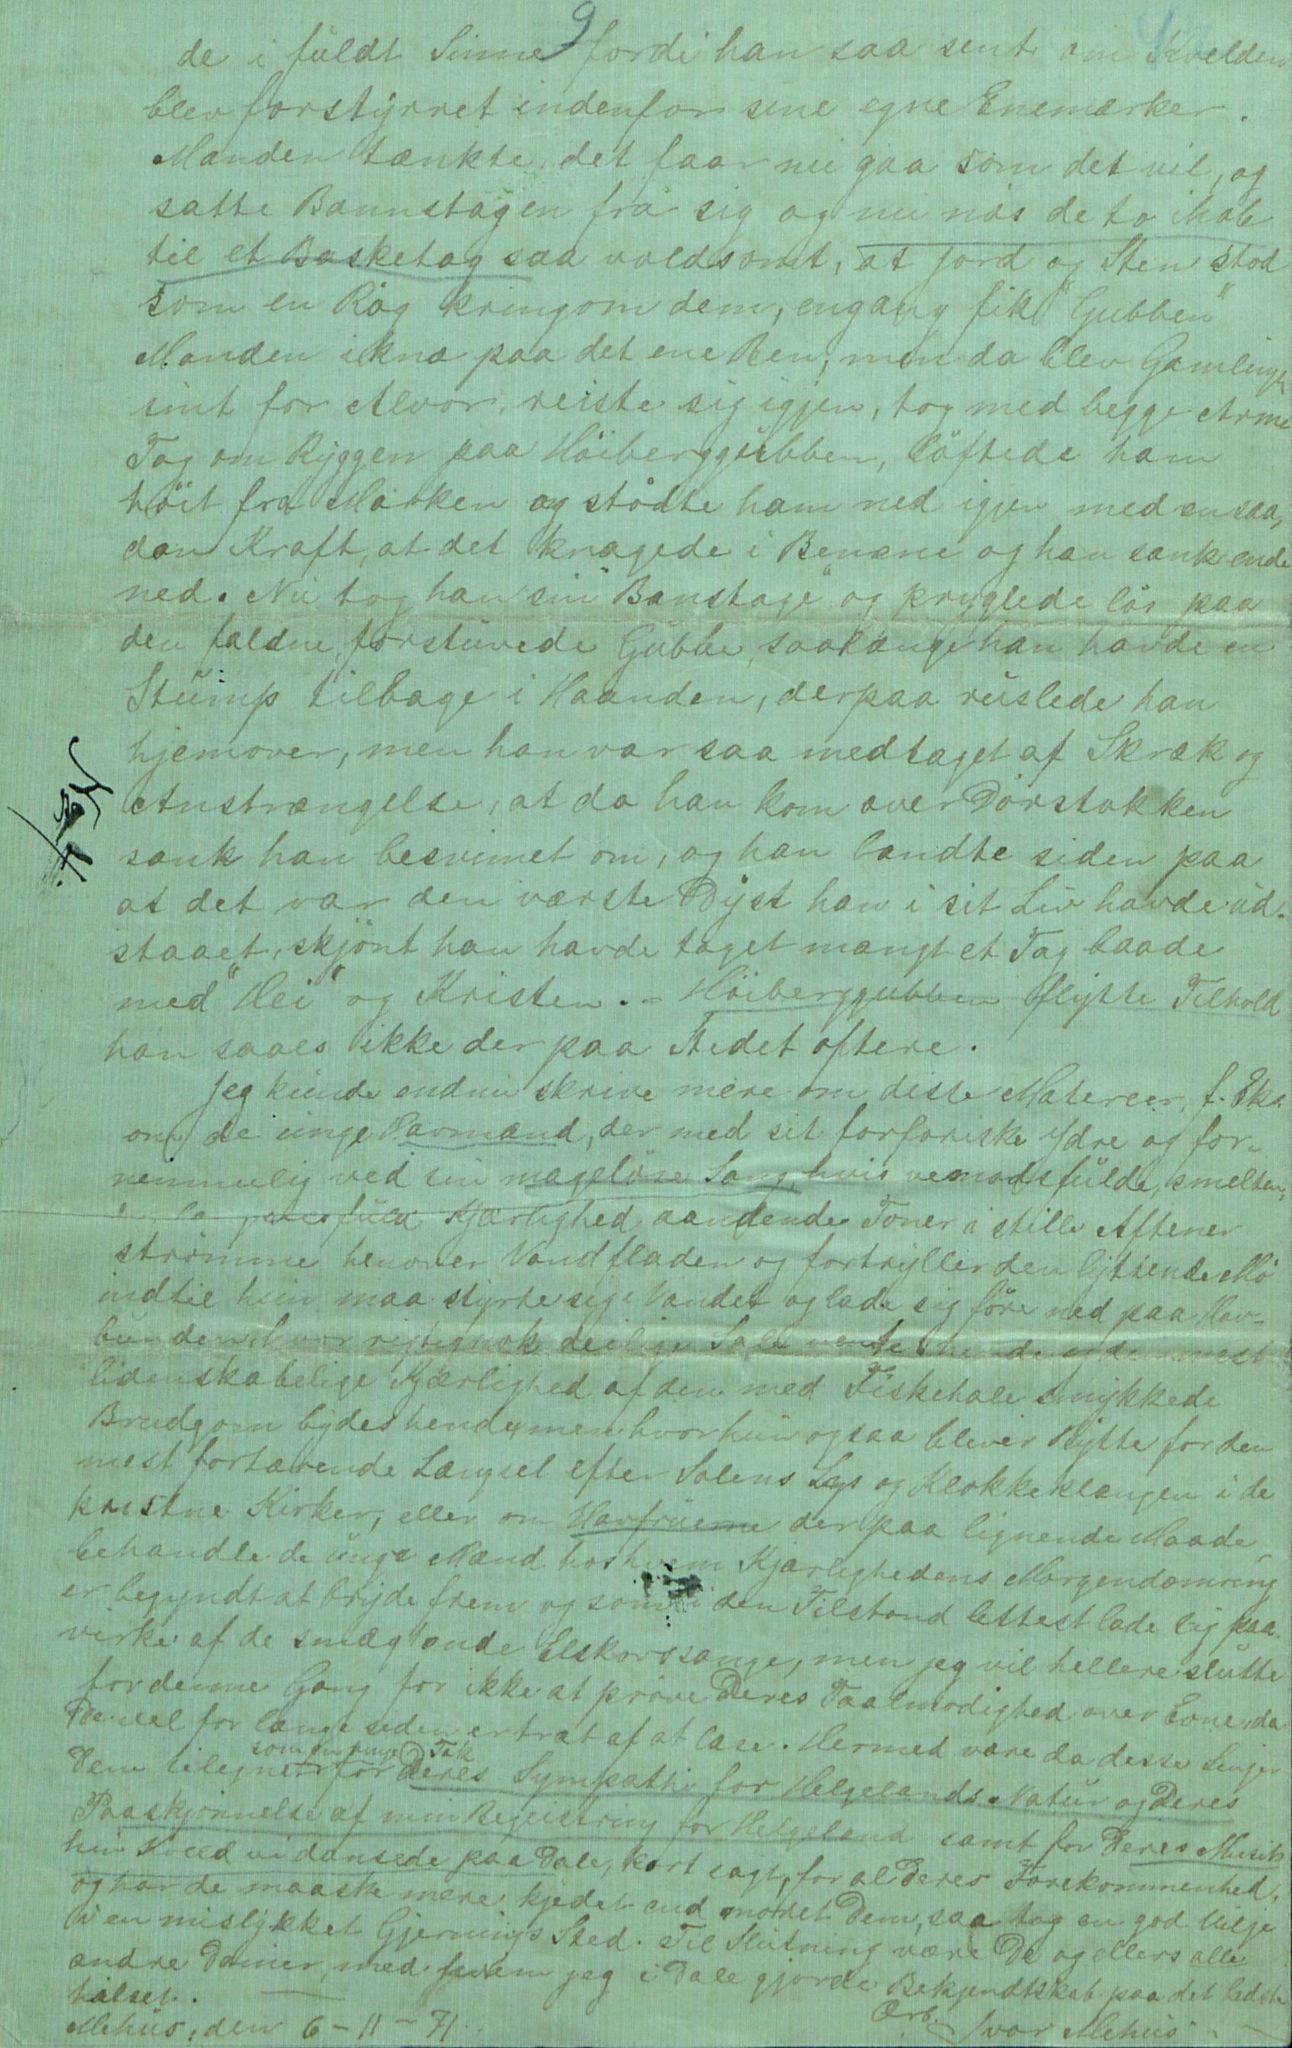 9
de i fuldt Sinne fordi han saa sent om Kvelden
blev forstyrret indenfor sine egne Enemærker.
Manden tænkte, det faar nu gaa som det vil, og
satte Baunstagen fra sig og nu røs de to ihob
til et Basketag saa voldsomt, at Jord og Sten stod
som en Røg kringom dem, engang fik "Gubben"
Manden iknæ paa det ene Ben, men da blev Gamlingen
sint for Alvor, reiste sig igjen, tog med begge Arme
Tag om Ryggen paa Høiberggubben, løftede ham
høit fra Marken og stødte ham ned igjen med en saa,
dan Kraft, at det knagede i Benene og han sank ende
ned. Nu tog han sin "Banstage" og pryglede løs paa
den faldne, forstuvede Gubbe, saalænge han havde en
Stump tilbage i Haanden, derpaa ruslede han
hjemover, men han var saa medtaget af Skræk og
Anstrængelse, at da han kom over Dørstokken
sank han besvimet om, og han bandte siden paa
at det var den værste Dyst han i sit Liv havde ud-
staaet, skjønt han havde taget mangt et Tag baade
med "Hei" og Kristen. - Høiberggubben flytte Tilhold
han saaes ikke der paa Stedet oftere.
Jeg kunde endnu skrive mere om disse Materier, f. Eks.
om de unge Havmænd, der med sit forføriske Ydre og for-
nemmelig ved sin mageløse Sang, hvis vemodsfulde, smelten,
Kjærlighed aandende Toner i stille Aftener
strømme henover Vandfladen og fortryller den lyttende Mø
indtil hun maa styrte sig i Vandet og lade sig føre ned paa Hav-
bunden, hvor rigtignok deilige Sale vente hende og den mest
lidenskabelige Kjærlighed af den med Fiskehale smykkede
Brudgom bydes hende, men hvor hun ogsaa bliver Bytte for den
mest fortærende Længsel efter Solens Lys og Klokkeklangen i de
kristne Kirker, eller om Havfruerne der paa lignende Maade
behandle de unge Mænd hos hvem Kjærlighedens Morgendæmring
er begyndt at bryde frem og som i den Tilstand lettest lade sig paa-
virke af de smægtende Elskovssange, men jeg vil hellere slutte
for denne Gang for ikke at prøve Deres Taalmodighed over Evne, da
De vel for længe siden er træt af at læse. Hermed være da disse Linjer
som en ringe Tak
Dem tilegnet for Deres Sympathi for Helgelands Natur og Deres
Paaskjønnelse af min Begeistring for Helgeland samt for Deres Musik
hin Kveld vi dansede paa Dale, kort sagt, for al Deres Forekommenhed,
og har de maaske mere kjedet end moret Dem, saa tag en god Vilje
i en mislykket Gjernings Sted. Til Slutning være De og ellers alle
andre Damer, med hvem jeg i Dale gjorde Bekjendtskab paa det bedste
hilset.
Mehus, den 6-11-71.
Ærb.
Ivar Mehus